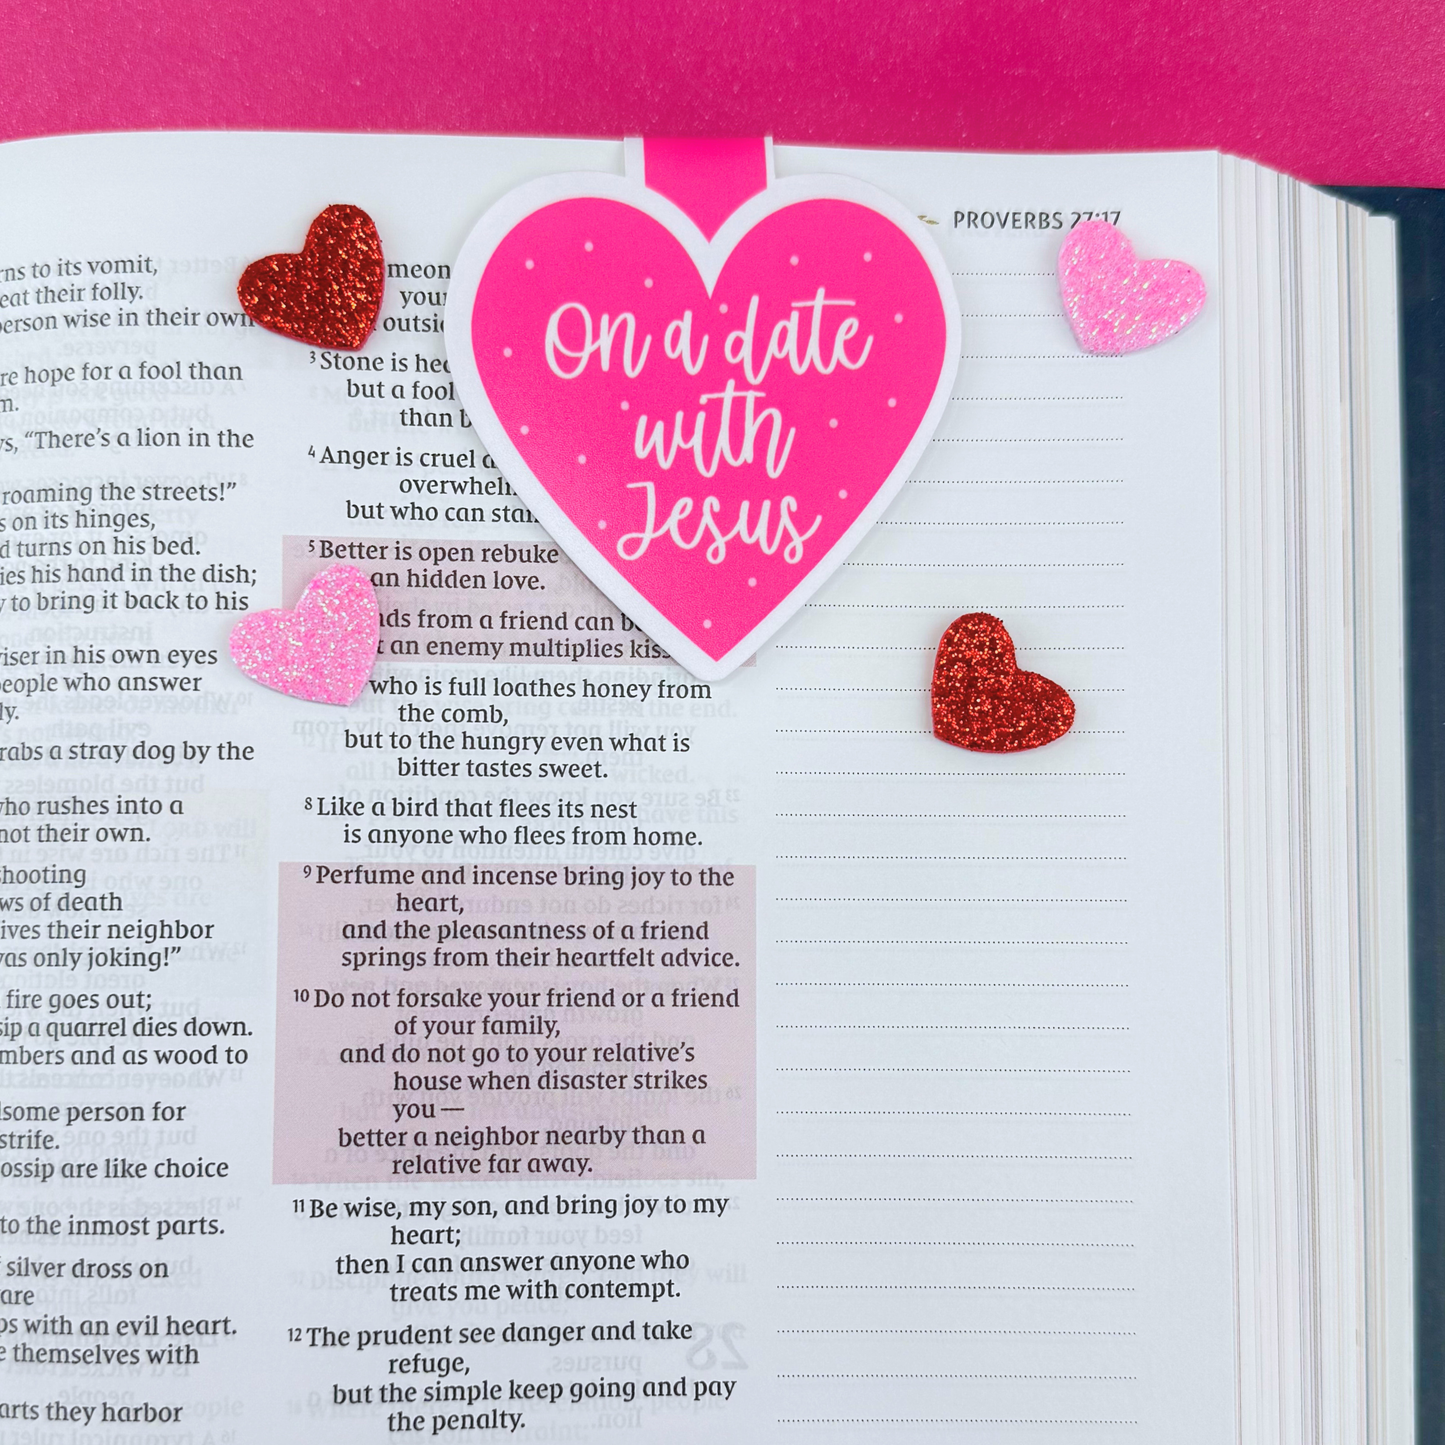 PROVERBS 27:17
On a date
with
Jesus
to its vomit,
their folly.
wise in their own
hope for a fool than
"There's a lion in the
roaming the streets!"
on its hinges,
turns on his bed.
his hand in the dish;
to bring it back to his
in his own eyes
who answer
a stray dog by the
rushes into a
not their own.
of death
their neighbor
only joking!"
fire goes out;
a quarrel dies down.
and as wood to
person for
strife.
are like choice
to the inmost parts.
silver dross on
are
with an evil heart.
themselves with
they harbor
3 Stone is
but a fool
than
4 Anger is cruel
but who can
5 Better is open rebuke
hidden love.
from a friend can
an enemy multiplies
who is full loathes honey from
the comb,
but to the hungry even what is
bitter tastes sweet.
8 Like a bird that flees its nest
is anyone who flees from home.
9 Perfume and incense bring joy to the
heart,
and the pleasantness of a friend
springs from their heartfelt advice.
10 Do not forsake your friend or a friend
of your family,
and do not go to your relative's
house when disaster strikes
you—
better a neighbor nearby than a
relative far away.
11 Be wise, my son, and bring joy to my
heart;
then I can answer anyone who
treats me with contempt.
12 The prudent see danger and take
refuge,
but the simple keep going and pay
the penalty.